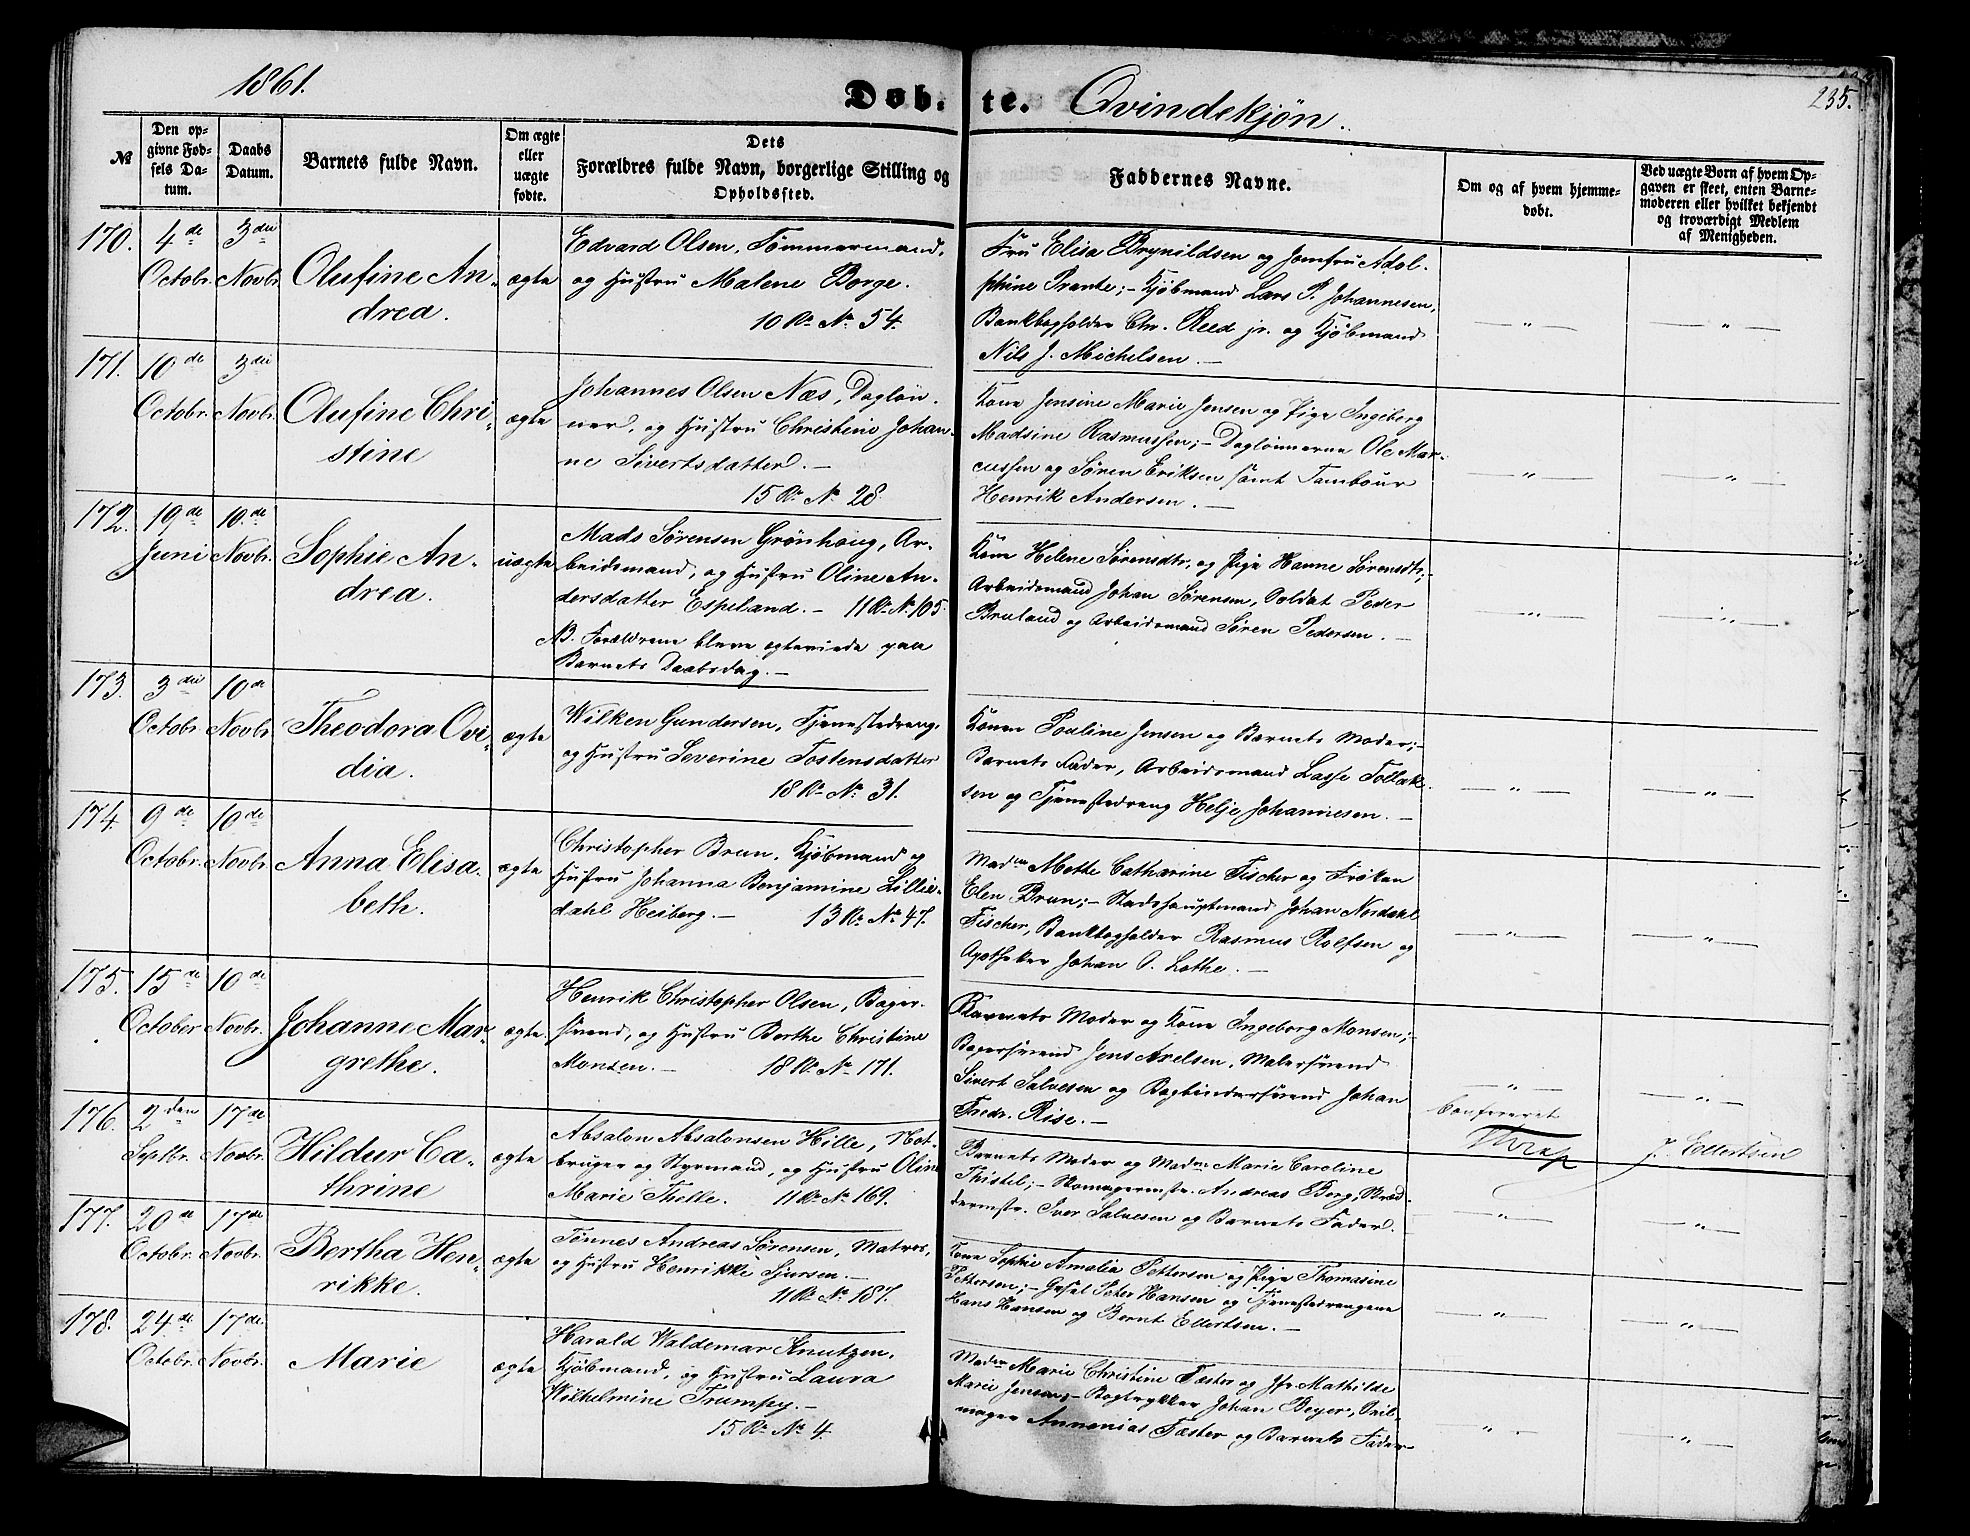 1861.
Døb-te. Qvindekjøn.
235.
№
Den op-
givne Fød-
sels Da-
tum.
Daabs
Datum.
Barnets fulde Navn.
Om ægte
eller
uægte
fødte.
Dets
Forældres fulde Navn, borgerlige Stilling og
Opholdssted.
Faddernes Navne.
Om og af hvem hjemme-
døbt.
Ved uægte Børn af hvem Op-
gaven er skeet, enten Barne-
moderen eller hvilket bekjendt
og troværdigt Medlem
af Menigheden.
170.
4de
Octobr.
3die
Novbr.
Olufine An-
drea.
ægte
Edvard Olsen, Tømmermand,
og Hustru Malene Borge.
10 R. No 54.
Fru Elisa Brynildsen og Jomfru Adol-
phine Prante; - Kjøbmand Lars P. Johannesen,
Bankbogholder Chr. Reed jr. og Kjøbmand
Nils J. Michelsen. -
171.
10de
Octobr.
3die
Novbr.
Olufine Chri-
stine
ægte
Johannes Olsen Næs, Dagløn-
ner, og Hustru Christine Johan-
ne Sivertsdatter. -
15 R. No 28
Kone Jensine Marie Jensen og Pige Ingeborg
Madsine Rasmussen; - Daglønnerne Ole Mar-
cussen og Søren Eriksen samt Tambour
Henrik Andersen. -
172.
19de
Juni
10de
Novbr.
Sophie An-
drea.
uægte
Mads Sørensen Grønhaug, Ar-
beidsmand, og Hustru Oline An-
dersdatter Espeland. - 11 R. No 105.
NB. Forældrene bleve egteviede paa
Barnets Daabsdag. -
Kone Helene Sørensdtr. og Pige Hanne Sørensdtr; -
Arbeidsmand Johan Sørensen, Soldat Peder
Bruland og Arbeidsmand Søren Pedersen. -
173.
3die
Octobr.
10de
Novbr.
Theodora Ovi-
dia.
ægte
Wilken Gundersen, Tjenestedreng,
og Hustru Severine Tostensdatter
18 R. No 31.
Konen Pouline Jensen og Barnets Moder; -
Barnets Fader, Arbeidsmand Lasse Tollak-
sen og Tjenestedreng Helje Johannesen. -
174.
9de
Octobr.
10de
Novbr.
Anna Elisa-
beth.
ægte
Christopher Brun, Kjøbmand og
Hustru Johanna Benjamine Lillie-
dahl Heiberg. - 13 R. No 47.
Madme Mette Catharine Fischer og Frøken
Elen Brun; - Stadshauptmand Johan Nordahl
Fischer, Bankbogholder Rasmus Rolfsen og
Apotheker Johan O. Lothe. -
175.
15de
October
10de
Novbr.
Johanne Mar-
grethe.
ægte
Henrik Christopher Olsen, Bager-
svend, og Hustru Berthe Christine
Monsen. - 18 R. No 171.
Barnets Moder og Kone Ingeborg Monsen; -
Bagersvend Jens Axelsen, Malersvend
Sivert Salvesen og Bogbindersvend Johan
Fredr. Rise. -
Confereret
J. Ellertsen
176.
2den
Septbr.
17de
Novbr.
Hildur Ca-
thrine
ægte
Absalon Absalonsen Hille, Not-
bruger og Styrmand, og Hustru Oline
Marie Tholle. 11 R. No 169.
Barnets Moder og Madme Marie Caroline
Thistel; - Skomagermstr. Andreas Berg, Skræd-
dermstr. Iver Salvesen og Barnets Fader.
177.
20de
Octobr.
17de
Novbr.
Bertha Hen-
rikke.
ægte
Tønnes Andreas Sørensen, Matros,
og Hustru Henrikke Sjursen. -
11 R. No 187.
Kone Sophie Amalia Pettersen og Pige Thomasine
Pettersen; - Gesel Peter Hansen og Tjenestedrengene
Hans Hansen og Bernt Ellertsen. -
178.
24de
Octobr.
17de
Novbr.
Marie
ægte
Harald Waldemar Knutzen,
Kjøbmand, og Hustru Laura
Wilhelmine Trumpy. -
15 R. No 4.
Madme Marie Christine Fæster og Jfr Mathilde
Marie Jensen; - Bogtrykker Johan Beyer, Seil-
mager Annanias Fæster og Barnets Fader